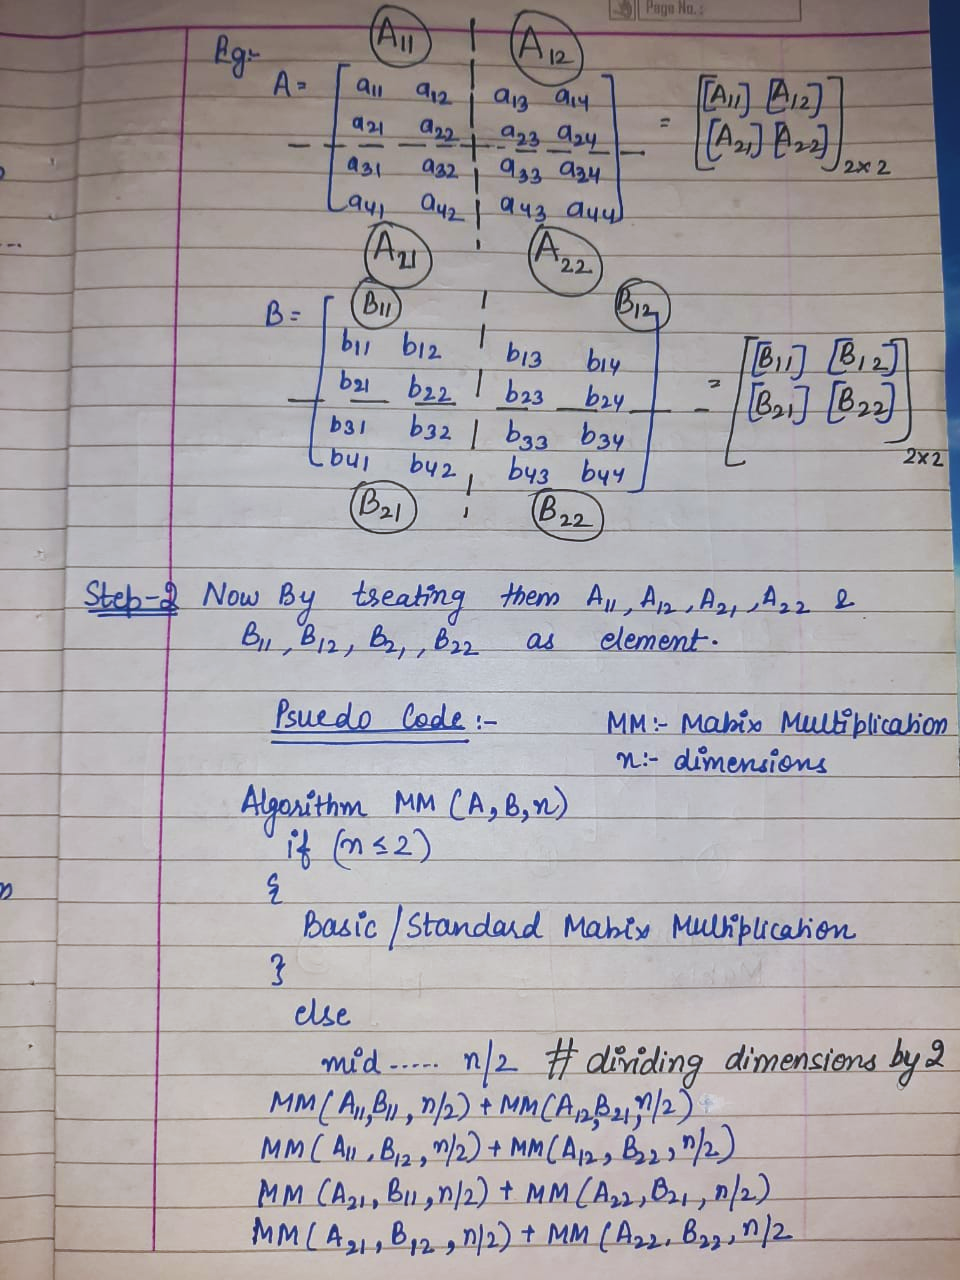 Page No. :
Eg:-
A11 A12
A = [ a11 a12 a13 a14
a21 a22 a23 a24
a31 a32 a33 a34
a41 a42 a43 a44 ] = [ [A11] [A12]
[A21] [A22] ] 2×2
A21 A22
B11 B12
B = [ b11 b12 b13 b14
b21 b22 b23 b24
b31 b32 b33 b34
b41 b42 b43 b44 ] = [ [B11] [B12]
[B21] [B22] ] 2×2
B21 B22
Step-2 Now By treating them A11, A12, A21, A22 &
B11, B12, B21, B22 as element.
Psuedo Code :-
MM:- Matrix Multiplication
n:- dimensions
Algorithm MM (A, B, n)
if (n ≤ 2)
{
Basic / Standard Matrix Multiplication
}
else
mid ..... n/2 # dividing dimensions by 2
MM( A11, B11, n/2) + MM(A12, B21, n/2)
MM( A11, B12, n/2) + MM(A12, B22, n/2)
MM (A21, B11, n/2) + MM (A22, B21, n/2)
MM( A21, B12, n/2) + MM (A22, B22, n/2